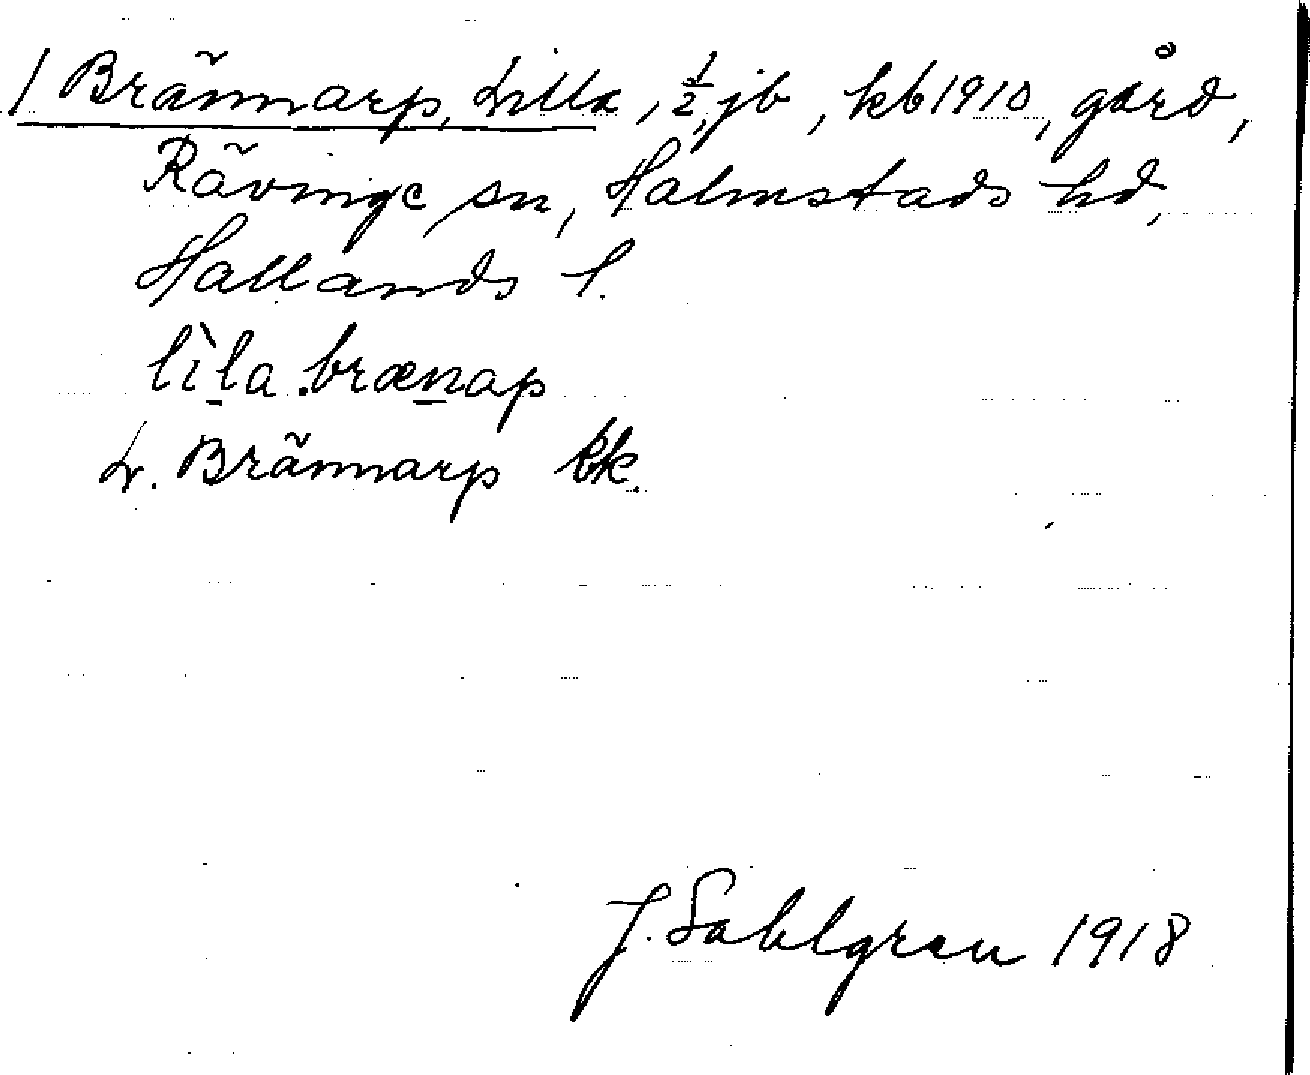 / Brännarp, Lilla, ½, jb, kb 1910, gård,
Rävinge sn, Halmstads hd,
Hallands l.
lìla .brænap
L. Brännarp kk.
J. Sahlgren 1918